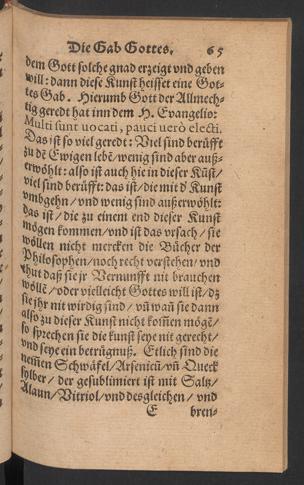 Die Gab Gottes. 65
dem Gott solche gnad erzeigt vnd geben
will: dann diese Kunst heisset eine Got-
tes Gab. Hierumb Gott der Allmech-
tig geredt hat inn dem H. Evangelio:
Multi sunt vocati, pauci verò electi.
Das ist so viel geredt: Viel sind berüfft
zu dē Ewigen lebē/ wenig sind aber auß-
erwöhlt: also ist auch hie in dieser Kūst/
viel sind berüfft: das ist/ die mit d' Kunst
vmbgehn/ vnd wenig sind außerwöhlt:
das ist/ die zu einem end dieser Kunst
mögen kommen/ vnd ist das vrsach/ sie
wöllen nicht mercken die Bücher der
Philosophen/ noch recht verstehen/ vnd
thut daß sie jr Vernunfft nit brauchen
wöllē/ oder vielleicht Gottes will ist/ dz
sie jhr nit wirdig sind/ vn̄ wan̄ sie dann
also zu dieser Kunst nicht kom̄en mögē/
so sprechen sie die kunst seye nit gerecht/
vnd seye ein betrügnuß. Etlich sind die
nem̄en Schwäfel/ Arsenicū/ vn̄ Queck
sylber/ der gesublimiert ist mit Saltz/
Alaun/ Vitriol/ vnd desgleichen/ vnd
E bren-